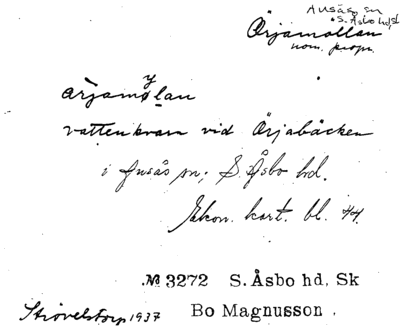 Ausås sn
S. Åsbo hd, Sk
Örjamöllan
nom. propr.
y
årjamø̱lan
vattenkvarn vid Örjabäcken
i Ausås sn; S. Åsbo hd.
Ekon. kart. bl. 44.
№ 3272 S. Åsbo hd, Sk
Strövelstorp 1937 Bo Magnusson.